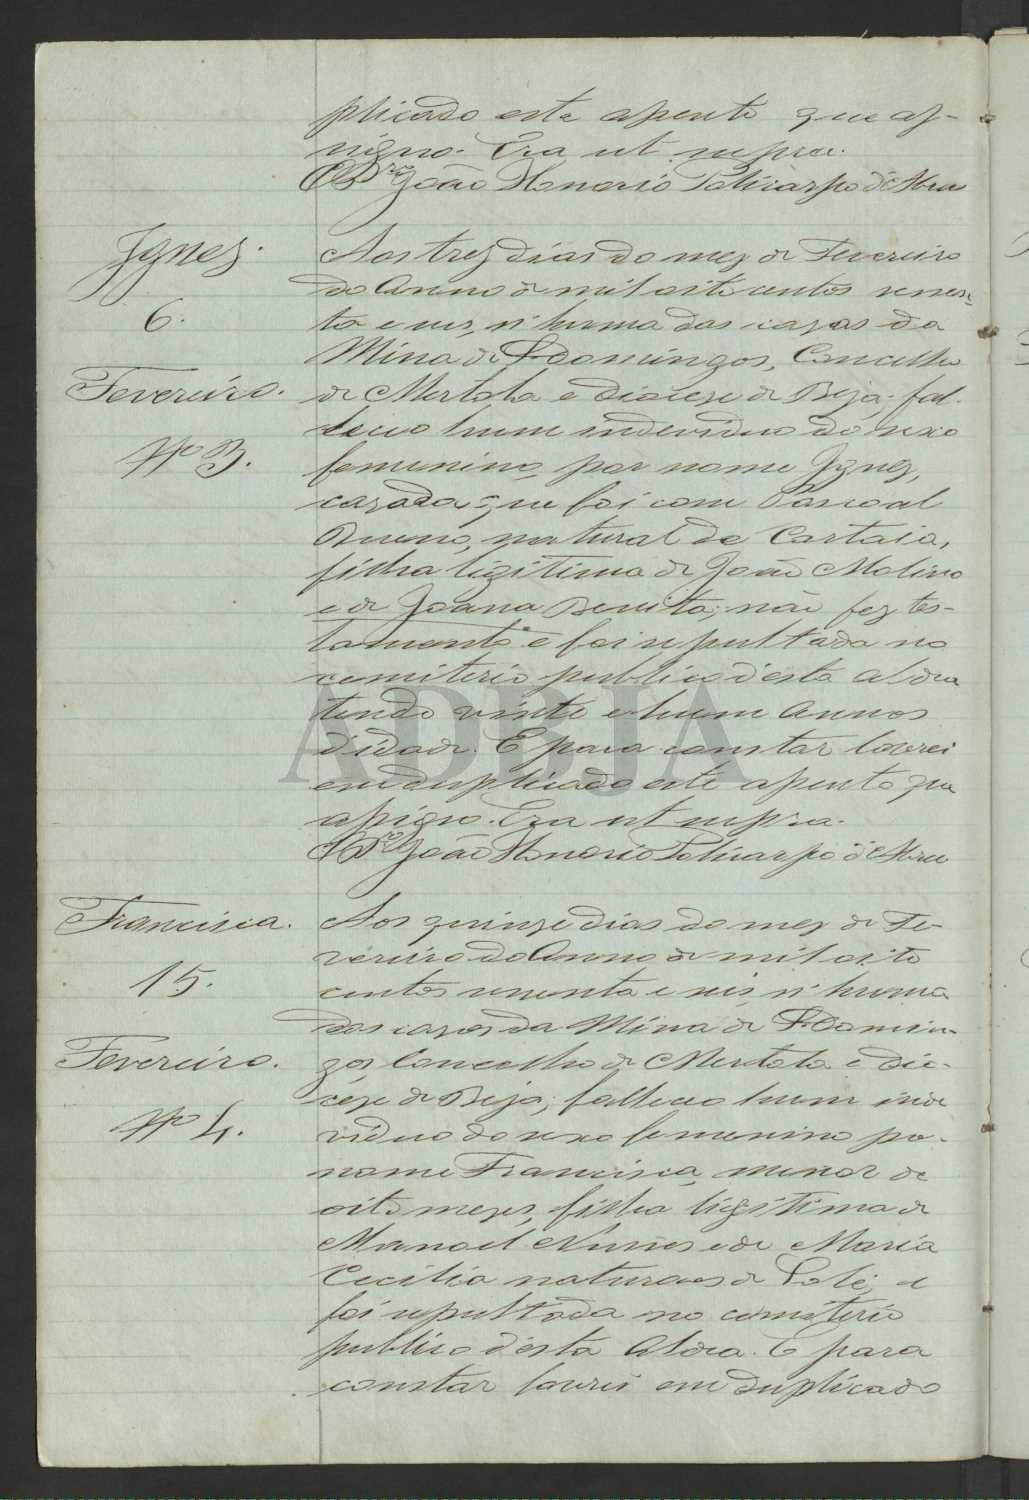 plicado este assento que as-
signo. Era ut supra.
O Pr.or João Honorio Policarpo d'Abreu
Ignez.
6.
Fevereiro.
Nº 3.
Aos trez dias do mez de Fevereiro
do Anno de mil oito centos sessen-
ta e seis, n'huma das cazas da
Mina de S. Domingos, Concelho
de Mertola e diocese de Beja; fal-
leceo hum individuo do sexo
femenino, por nome Ignez,
cazada que foi com Pascoal
Bueno, natural de Cartaia,
filha ligitima de João Molino
e de Joana Benita; não fez tes-
tamento e foi sepultada no
cemiterio publico d'esta aldea
tendo vinte e hum annos
d'idade. E para constar lavrei
em duplicado este assento que
assigno. Era ut supra.
O Pr.or João Honorio Policarpo d'Abreu
Francisca.
15.
Fevereiro.
Nº 4.
Aos quinze dias do mez de Fe-
vereiro do Anno de mil oito
centos sessenta e seis, n'huma
das cazas da Mina de S. Domin-
gos Concelho de Mertola e dio-
ceze de Beja; falleceo hum indi
viduo do sexo femenino por
nome Francisca, menor de
oito mezes, filha ligitima de
Manoel Nunes e de Maria
Cecilia naturaes de Lolé; e
foi sepultada no cemiterio
publico d'esta Aldea. E para
constar lavrei em duplicado
ADBJA